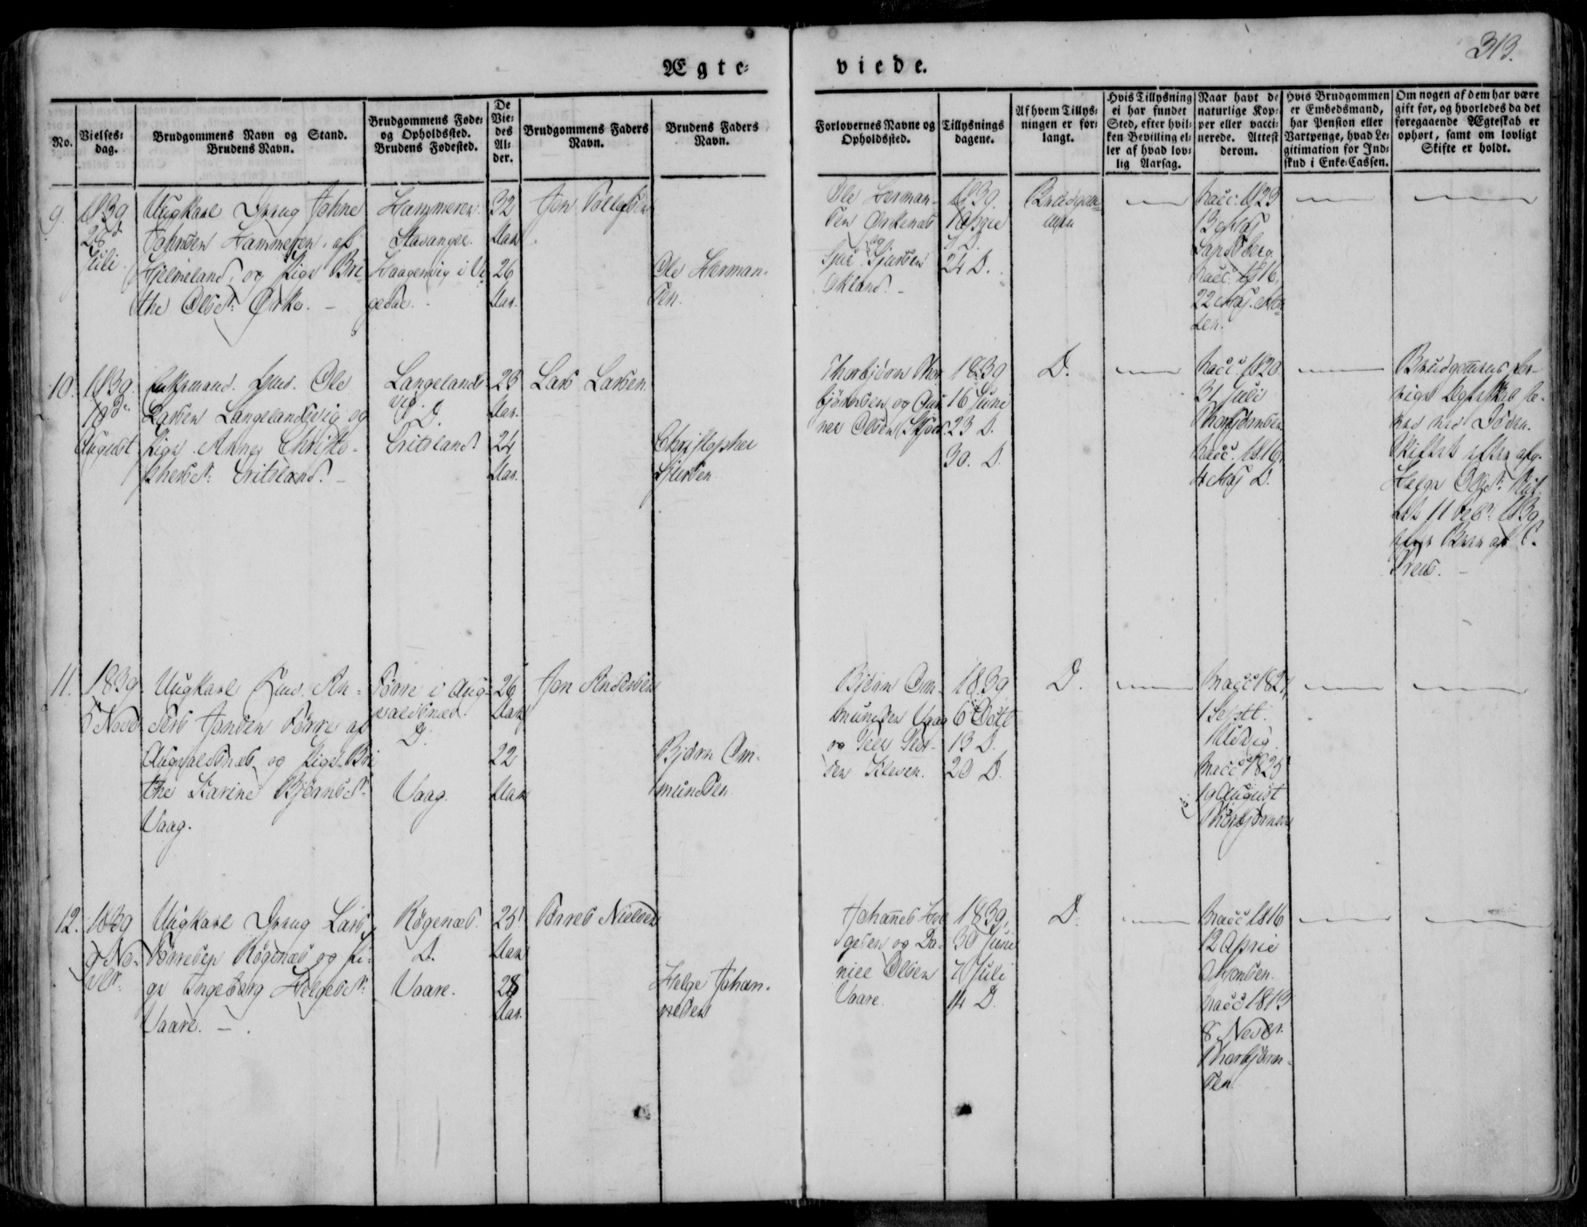 313.
Ægte=
viede.
No.
Vielses=
dag.
Brudgommens Navn og Stand.
Brudens Navn.
Brudgommens Føde=
og Opholdssted.
Brudens Fødested.
De
Vie=
des
Al=
der.
Brudgommens Faders
Navn.
Brudens Faders
Navn.
Forlovernes Navne og
Opholdssted.
Tillysnings
dagene.
Af hvem Tillys=
ningen er for=
langt.
Hvis Tillysning
ei har fundet
Sted, efter hvil=
ken Bevilling el=
ler af hvad lov=
lig Aarsag.
Naar havt de
naturlige Kop=
per eller vacci=
nerede. Attest
derom.
Hvis Brudgommen
er Embedsmand,
har Pension eller
Vartpenge, hvad Le=
gitimation for Ind=
skud i Enke-Cassen.
Om nogen af dem har være
gift før, og hvorledes da det
foregaaende Ægteskab er
ophørt, samt om lovligt
Skifte er holdt.
9.
1839
28
Juli
Ungkarl Johne
Johnsen Hammeren af
Hjelmeland, og Pige Bri-
the Olsdr. Ørke. —
Hammeren
Stavanger.
i Vi-
gedal.
32
Aar
26
Aar.
Jon
Ole Herman-
sen.
Ole Herman-
sen
og
Økland. —
1839.
7 D.
24 D.
—
vacc. 1823
13 Maj
vacc. 1816
22 Maj
—
—
10.
1839.
18de
August
Enkemand Ole
Larsen Langelandsvig og
Pige Anne Christo-
phersdr. Eritsland. —
Langelands-
vig. D.
Eritsland
25
Aar.
24
Aar.
Lars Larsen
Christopher
Thorbjörn Thor-
björnsen og Gun-
nar Olsen
1839
16 Juni
23 D.
30. D.
D.
—
vacc. 1820
31 Juli
Thorbjørnsen
vacc. 1816
4 Maj D.
—
Brudgommens for-
rige Ægteskab be-
ved Døden.
Skiftet efter afg.
Olsdr.
11 1839
11.
1839
Ungkarl An-
ders Jansen Førre af
Augvaldsnæs og Pige Bri
the Karine Bjørnsdr.
Vaag.
Førre i Aug-
valdsnæs.
D.
Vaag.
26
Aar
22
Aar
Jan Andersen
Bjørn Om-
mundsen
Bjørn Om-
mundsen Vaag
og
Kleven.
1839
6 Octb
13 D.
20 D.
D.
—
vacc 1821
1 Sept.
vacc 1825
19 August
Thorbjørnsen
—
—
12.
1839
Ungkarl Lars
Børresen Røgenæs og Pi-
ge Ingeborg Helgesdr.
Vaare. — .
Røgenæs.
D.
Vaare.
25
Aar
28
Aar.
Børres Nielsen
Helge Johan-
nesen
Johannes Hel-
gesen og Da-
niel Olsen
Vaare.
1839.
30 Juni
7 Juli
14 D.
D.
—
vacc 1816
12 April
vacc 1813
8 Novbr.
Thorbjørn-
sen
—
—